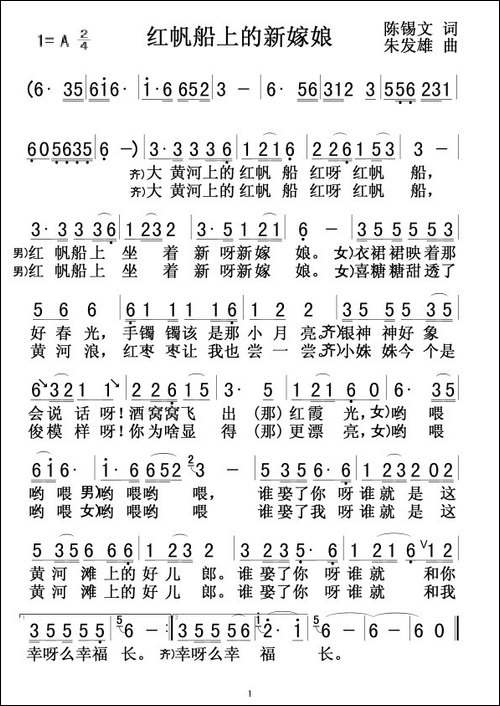 红帆船上的新嫁娘
1= A 2/4
陈锡文 词
朱发雄 曲
(6· 35 616· | 1·6 652 | 3 - | 6· 56 | 312 3 | 556 231 |
605635 | 6 -) | 3·3 336 | 1 216 | 2 26153 | 3 - |
齐)大 黄河上的 红帆 船 红呀 红帆 船,
齐)大 黄河上的 红帆 船 红呀 红帆 船,
3·3 336 | 1232 | 3·5 121 | 6 - | 3·5 555 |
男)红 帆船上 坐 着 新 呀新嫁 娘。女)衣裙裙映着那
男)红 帆船上 坐 着 新 呀新嫁 娘。女)喜糖糖甜透了
5 6 6 | 61 11 | 16 16 | 12 2 | 35 535 |
好 春 光, 手镯 镯该 是那 小 月 亮。齐)银神 神好 象
黄 河 浪, 红枣 枣让 我也 尝 一 尝。齐)小姝 姝今 个是
6 321 | 1· | 22615 | 3· 5 | 121 60 | 6· 35 |
会说 话 呀!酒窝窝飞 出 (那) 红霞 光,女)哟 喂
俊模 样 呀!你为啥显 得 (那) 更漂 亮,女)哟 喂
616· | 2·6 6652 | 3 - | 5356 6· | 1 232 2 |
哟 喂 男)哟 喂哟 喂, 谁娶了你 呀谁就 是这
哟 喂 女)哟 喂哟 喂, 谁娶了我 呀谁就 是这
5 35 66 | 1· 232 | 3·235 | 6· 6 | 1216 | 12 |
黄 河 滩 上的 好 儿 郎。谁 娶了你 呀谁就 和你
黄 河 滩 上的 好 儿 郎。谁 娶了你 呀谁就 和我
35555 | 6 - :| 35556 | 2· 1 | 6 - | 6 - | 60 ‖
幸呀么幸福 长。 齐)幸呀么幸 福 长。
1